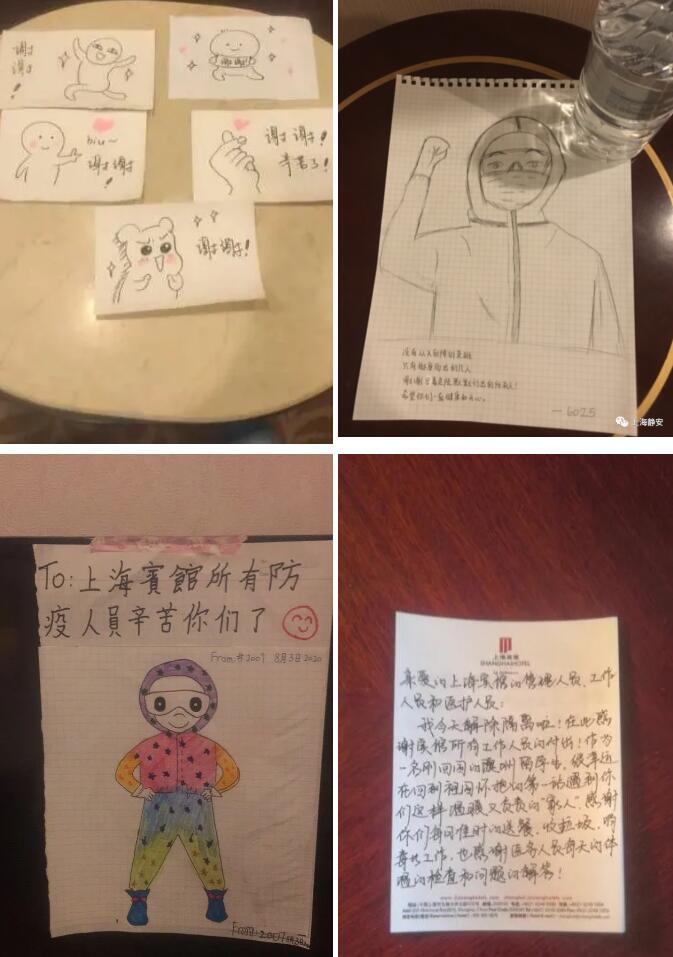 谢
谢
!
谢谢
biu~
谢谢
!
谢谢!
辛苦了!
谢谢!
没有从天而降的英雄
只有挺身而出的凡人
希望你们一直健康和开心。
—6025
上海静安
To:上海賓館所有防
疫人員辛苦你们了
From:#2007 8月3日2020
上海宾馆
SHANGHAI HOTEL
亲爱的上海宾馆的管理人员、工作
人员和医护人员:
我今天解除隔离啦!在此感
谢宾馆所有工作人员的付出!作为
一名刚回国的澳洲留学生,很幸运
在回到祖国怀抱的第一站遇到你
们这样温暖又负责的“家人”感谢
你们每日准时的送餐、收垃圾、消
毒工作,也感谢医务人员每天的体
温的检查和问题的解答!